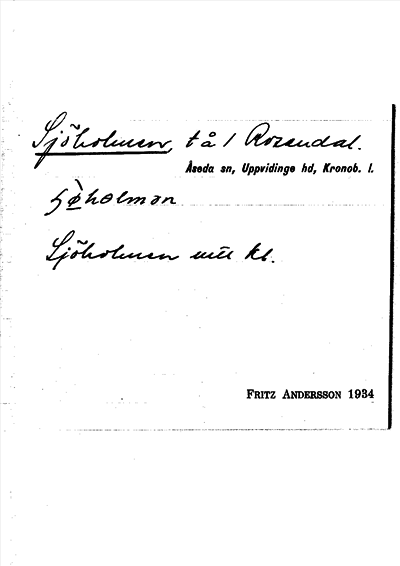 Sjöholmen, tå / Rosendal.
Åseda sn, Uppvidinge hd, Kronob. l.
Sjöholmen kl.
FRITZ ANDERSSON 1934